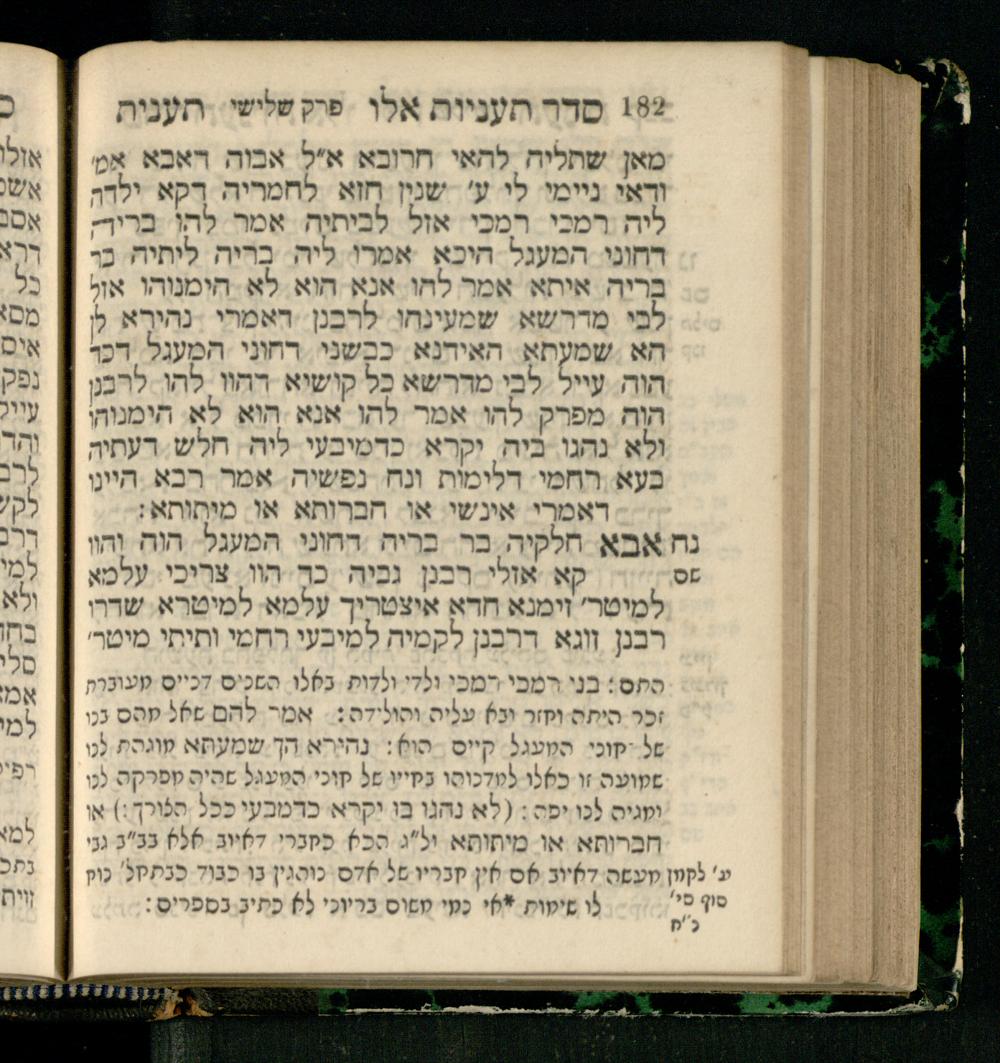 182 סדר תעניות אלו פרק שלישי תענית
מאן שתליה להאי חרובא א״ל אבוה דאבא אמ׳
ודאי ניימי לי ע׳ שנין חזא לחמריה דקא ילדה
ליה רמכי רמכי אזל לביתיה אמר להו בריה
דחוני המעגל היכא אמרו ליה בריה ליתיה בר
בריה איתא אמר להו אנא הוא לא הימנוהו אזל
לבי מדרשא שמעינהו לרבנן דאמרי נהירא לן
הא שמעתא האידנא כבשני דחוני המעגל דכד
הוה עייל לבי מדרשא כל קושיא דהוו להו לרבנן
הוה מפרק להו אמר להו אנא הוא לא הימנוהו
ולא נהגו ביה יקרא כדמיבעי ליה חלש דעתיה
בעא רחמי דלימות ונח נפשיה אמר רבא היינו
דאמרי אינשי או חברותא או מיתותא:
נח אבא חלקיה בר בריה דחוני המעגל הוה והוו
שם קא אזלי רבנן גביה כד הוו צריכי עלמא
למיטר׳ זימנא חדא איצטריך עלמא למיטרא שדרו
רבנן זוגא דרבנן לקמיה למיבעי רחמי ותיתי מיטר׳
התם: בני רמכי רמכי ולדי ולדות באלו השנים דכיים מעוברת
זכר היתה וחזר ובא עליה והולידה: אמר להם שאל מהם בנו
של חוני המעגל קיים הוא: נהירא הך שמעתא מוגהת לנו
שמועה זו כאלו למדנוהו בחייו של חוני המעגל שהיה מפרקה לנו
ומגיה לנו יפה: (לא נהגו בו יקרא כדמבעי ככל הצורך:) או
חברותא או מיתותא ול״ג הכא כחברי דאיוב אלא בב״ב גבי
ע׳ לקמן מעשה דאיוב אם אין חבריו של אדם נוהגין בו כבוד כבתחל׳ נוח
סוף סי׳ לו שימות *אי נמי משום בריוני לא כתיב בספרים:
כ״ח